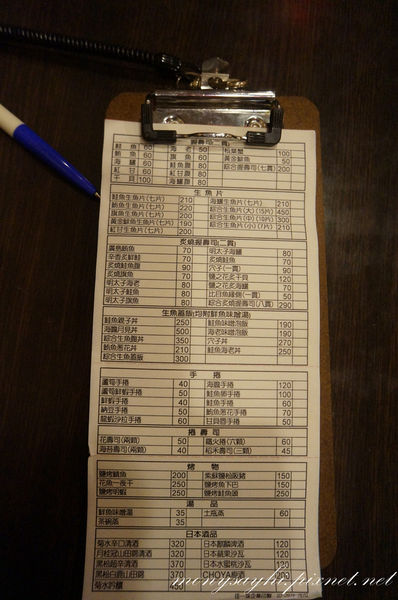 握壽司(二貫)
鮭魚 60 海老 50 松葉蟹 100
鮪魚 60 旗魚 60 黃金鯡魚 50
海鱺 60 鮭魚腹 80 綜合壽司(七貫) 200
紅甘 60 紅甘腹 80
干貝 100 海鱺腹 80
生魚片
鮭魚生魚片(七片) 210 海鱺生魚片(七片) 210
鮪魚生魚片(七片) 220 綜合生魚片(大)(15片) 450
旗魚生魚片(七片) 200 綜合生魚片(中)(10片) 300
黃金鯡魚生魚片(七片) 190 綜合生魚片(小)(7片) 210
紅甘生魚片(七片) 210
炙燒握壽司(二貫)
廣島鮪魚 70 明太子海鱺 80
辛香炙鮮鮭 70 炙燒鮭魚 70
炙燒鮭魚腹 90 穴子(一貫) 90
炙燒旗魚 70 鹽之花炙干貝 120
明太子海老 70 鹽之花炙海鱺 80
明太子鮭魚 80 比目魚緣側(一貫) 50
明太子旗魚 80 綜合炙燒握壽司(八貫) 290
生魚蓋飯(均附鮮魚味噌湯)
鮭魚親子丼 250 鮭魚味噌泡飯 190
海膽月見丼 500 海老味噌泡飯 190
綜合生魚丼 350 穴子丼 270
鮪魚蔥花丼 210 鮭魚海老丼 250
綜合生魚蓋飯 300
手捲
蘆筍手捲 40 海膽手捲 120
蘆筍鮮蝦手捲 50 鮭魚卵手捲 100
鮮蝦手捲 40 鮭魚手捲 60
納豆手捲 50 鮪魚蔥花手捲 70
龍蝦沙拉手捲 60 甘貝唇手捲 50
捲壽司
花壽司(兩顆) 50 鐵火捲(六顆) 60
海苔壽司(兩顆) 40 稻禾壽司(三顆) 45
烤物
鹽烤鯖魚 200 紫蘇鹽松阪豬 150
花魚一夜干 250 鹽烤魚下巴 150
鹽烤明蝦 250 鹽烤鮭魚頭 250
湯品
鮮魚味噌湯 35 土瓶蒸 60
茶碗蒸 35
日本酒品
菊水辛口清酒 320 日本麒麟啤酒 120
月桂冠山田錦清酒 320 日本蘋果沙瓦 120
黑松超辛清酒 370 日本水蜜桃沙瓦 120
黑松白鹿山田錦 370 CHOYA梅酒 200
菊水吟釀 450
menysayhi.pixnet.net